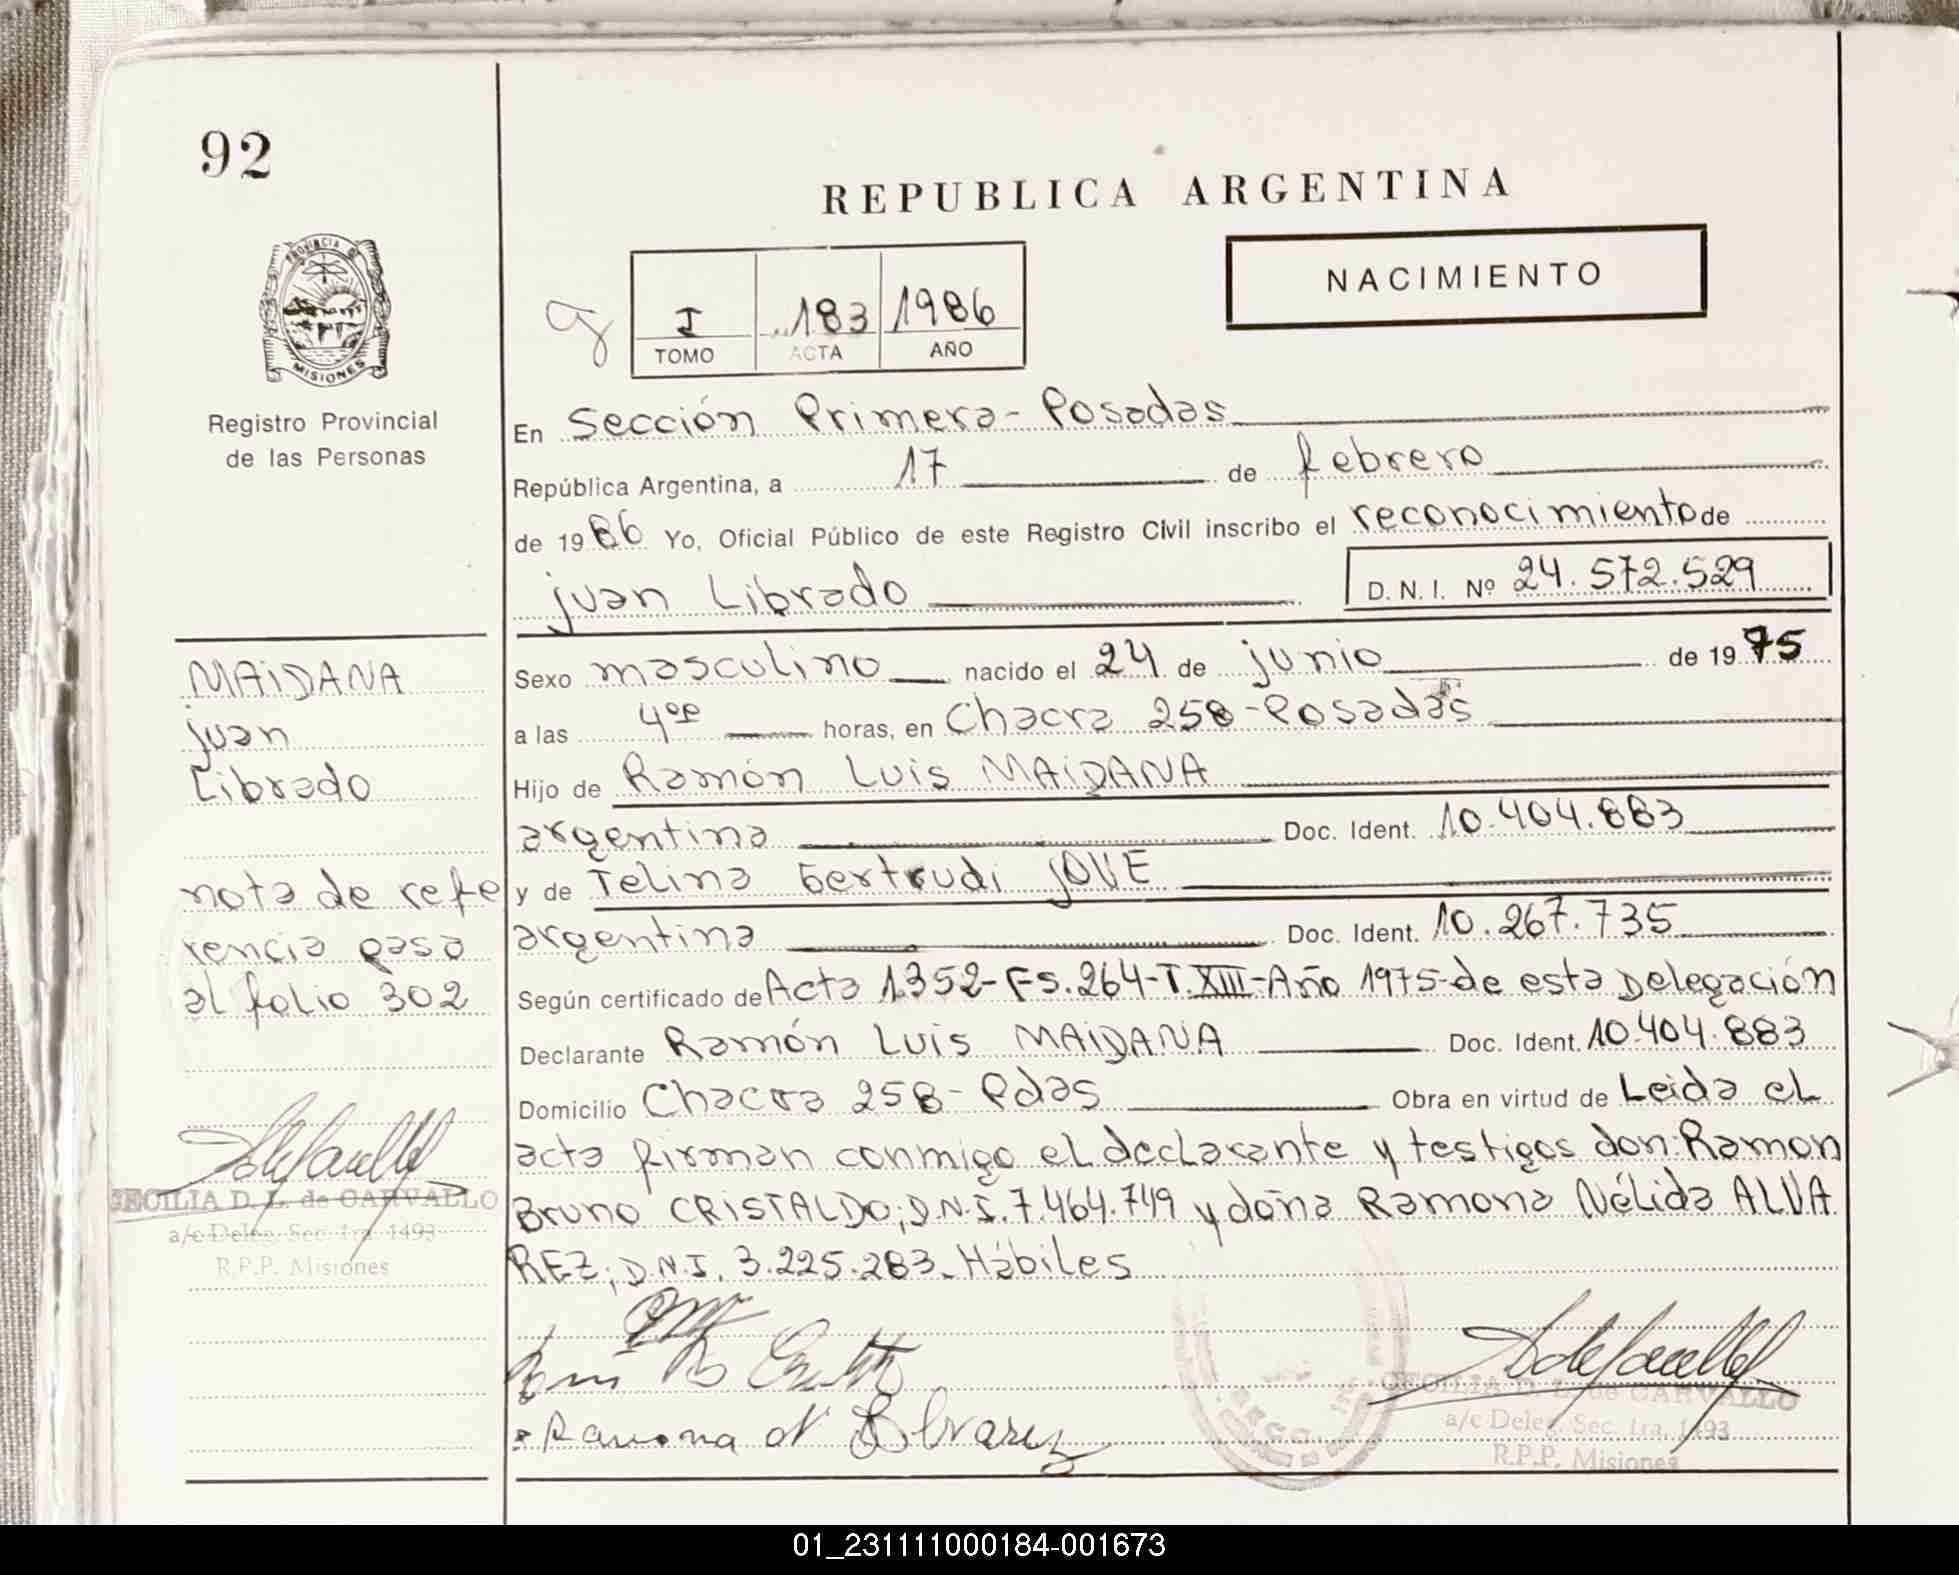 92
REPUBLICA ARGENTINA
NACIMIENTO
I 183 1986
TOMO ACTA AÑO
PROVINCIA DE
MISIONES
Registro Provincial
de las Personas
En Sección Primera-Posadas
República Argentina, a 17 de febrero
de 1986 Yo, Oficial Público de este Registro Civil inscribo el reconocimiento de
juan Librado D.N.I. Nº 24.572.529
MAIDANA
juan
Librado
nota de refe
rencia pasa
al folio 302
CECILIA D. L. de CARVALLO
a/c Deleg. Sec. 1ra. 1493
R.P.P. Misiones
Sexo masculino nacido el 24 de junio de 1975
a las 4⁰⁰ horas, en Chacra 258-Posadas
Hijo de Ramón Luis MAIDANA
argentina Doc. Ident. 10.404.883
y de Telina Gertrudi JOVE
argentina Doc. Ident. 10.267.735
Según certificado de Acta 1352-Fs.264-T.XIII-Año 1975-de esta Delegación
Declarante Ramón Luis MAIDANA Doc. Ident. 10.404.883
Domicilio Chacra 258-Pdas Obra en virtud de Leida el
acta firman conmigo el declarante y testigos don: Ramon
Bruno CRISTALDO; D.N.I. 7.464.749 y doña Ramona Nélida ALVA
REZ; D.N.I. 3.225.283. Hábiles
Ramona N Alvarez
CECILIA D. L. de CARVALLO
a/c Deleg. Sec. 1ra. 1493
R.P.P. Misiones
01_231111000184-001673